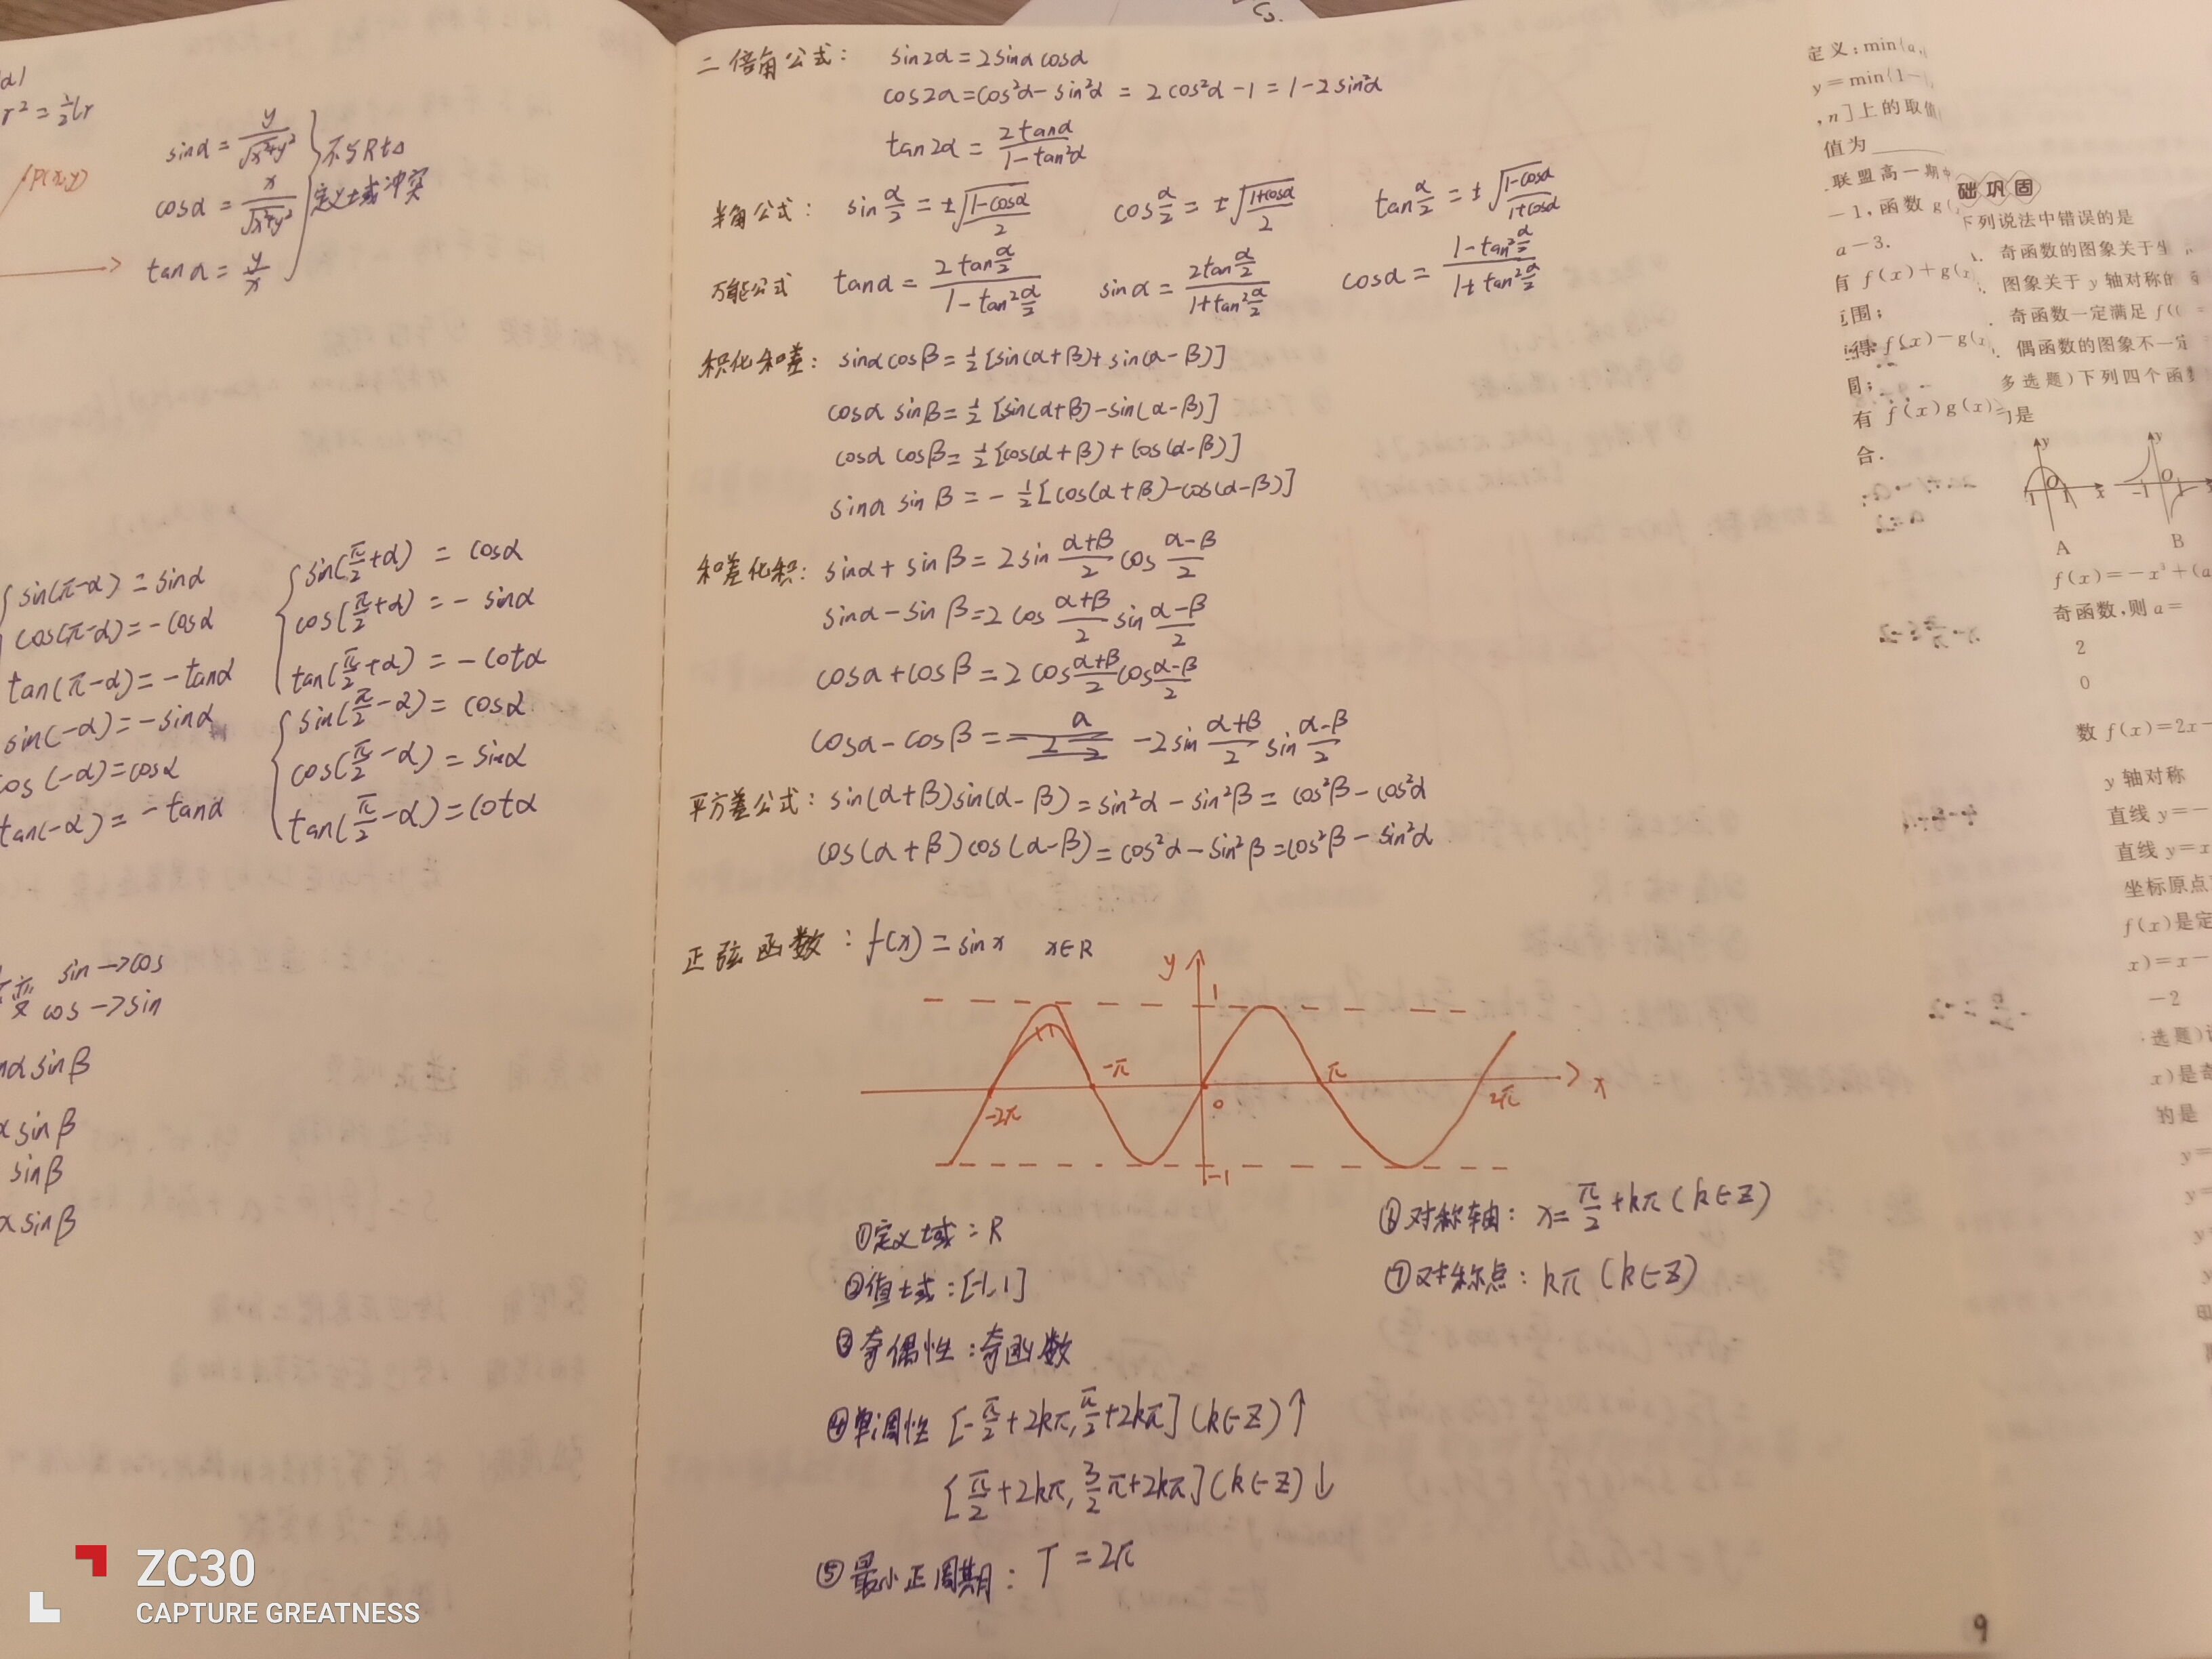 r² = ½lr
sinα = y/√(x²+y²)
cosα = x/√(x²+y²)
tanα = y/x
不与Rt△
定义域冲突
P(x,y)
sin(π-α) = sinα
cos(π-α) = -cosα
tan(π-α) = -tanα
sin(-α) = -sinα
cos(-α) = cosα
tan(-α) = -tanα
sin(π/2+α) = cosα
cos(π/2+α) = -sinα
tan(π/2+α) = -cotα
sin(π/2-α) = cosα
cos(π/2-α) = sinα
tan(π/2-α) = cotα
变 sin→cos
cos→sin
sinβ
sinβ
sinβ
α sinβ
二倍角公式: sin2α = 2sinα cosα
cos2α = cos²α - sin²α = 2cos²α - 1 = 1 - 2sin²α
tan2α = 2tanα/(1-tan²α)
半角公式: sin α/2 = ±√((1-cosα)/2) cos α/2 = ±√((1+cosα)/2) tan α/2 = ±√((1-cosα)/(1+cosα))
万能公式 tanα = 2tan(α/2)/(1-tan²(α/2)) sinα = 2tan(α/2)/(1+tan²(α/2)) cosα = (1-tan²(α/2))/(1+tan²(α/2))
积化和差: sinα cosβ = ½[sin(α+β)+sin(α-β)]
cosα sinβ = ½[sin(α+β)-sin(α-β)]
cosα cosβ = ½[cos(α+β)+cos(α-β)]
sinα sinβ = -½[cos(α+β)-cos(α-β)]
和差化积: sinα + sinβ = 2sin (α+β)/2 cos (α-β)/2
sinα - sinβ = 2cos (α+β)/2 sin (α-β)/2
cosα + cosβ = 2cos (α+β)/2 cos (α-β)/2
cosα - cosβ = -2sin (α+β)/2 sin (α-β)/2
平方差公式: sin(α+β)sin(α-β) = sin²α - sin²β = cos²β - cos²α
cos(α+β)cos(α-β) = cos²α - sin²β = cos²β - sin²α
正弦函数: f(x) = sinx x∈R
y
1
-2π -π 0 π 2π x
-1
①定义域: R
②值域: [-1,1]
③奇偶性: 奇函数
④单调性 [-π/2+2kπ, π/2+2kπ] (k∈Z)↑
[π/2+2kπ, 3/2π+2kπ] (k∈Z)↓
⑤最小正周期: T = 2π
⑥对称轴: x = π/2+kπ (k∈Z)
⑦对称点: kπ (k∈Z)
9
定义:min{a,
y=min{1-
,n]上的取值
值为
联盟高一期中
-1,函数 g(
a-3.
有 f(x)+g(x
范围;
得 f(x)-g(x
围;
有 f(x)g(x)
合.
础巩固
下列说法中错误的是
奇函数的图象关于坐
图象关于 y 轴对称的
奇函数一定满足 f(0
偶函数的图象不一定
多选题)下列四个函数
是
y
O
-1 1 x
y
O
-1 1
A B
f(x)=-x³+(a
奇函数,则 a=
2
0
数 f(x)=2x-
y 轴对称
直线 y=-
直线 y=x
坐标原点
f(x)是定
x)=x-
-2
选题)
x)是奇
的是
y=
y=
ZC30
CAPTURE GREATNESS